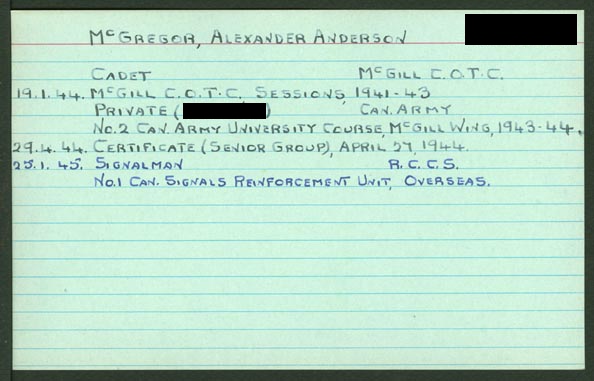 McGREGOR, ALEXANDER ANDERSON
CADET McGILL C.O.T.C.
19.1.44. McGILL C.O.T.C. SESSIONS, 1941-43
PRIVATE ( ) CAN. ARMY
No.2 CAN. ARMY UNIVERSITY COURSE, McGILL WING, 1943-44.
29.4.44. CERTIFICATE (SENIOR GROUP), APRIL 27, 1944.
25.1.45. SIGNALMAN R.C.C.S.
No.1 CAN. SIGNALS REINFORCEMENT UNIT, OVERSEAS.